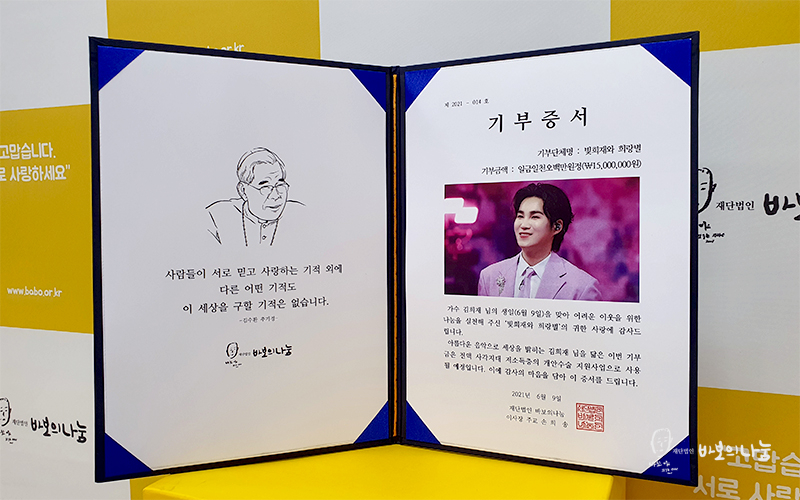 www.babo.or.kr
고맙습니다.
로 사랑하세요"
www.babo.or.kr
재단법인 바보의나눔
사람들이 서로 믿고 사랑하는 기적 외에
다른 어떤 기적도
이 세상을 구할 기적은 없습니다.
-김수환 추기경-
재단법인 바보의나눔
제 2021 - 014 호
기 부 증 서
기부단체명 : 빛희재와 희랑별
기부금액 : 일금일천오백만원정(₩15,000,000원)
가수 김희재 님의 생일(6월 9일)을 맞아 어려운 이웃을 위한
나눔을 실천해 주신 '빛희재와 희랑별'의 귀한 사랑에 감사드
립니다.
아름다운 음악으로 세상을 밝히는 김희재 님을 닮은 이번 기부
금은 전액 사각지대 저소득층의 개안수술 지원사업으로 사용
될 예정입니다. 이에 감사의 마음을 담아 이 증서를 드립니다.
2021년 6월 9일
재단법인 바보의나눔
이사장 주교 손 희 송
재단법인 바보
재단법인 바보의나눔
고맙습니